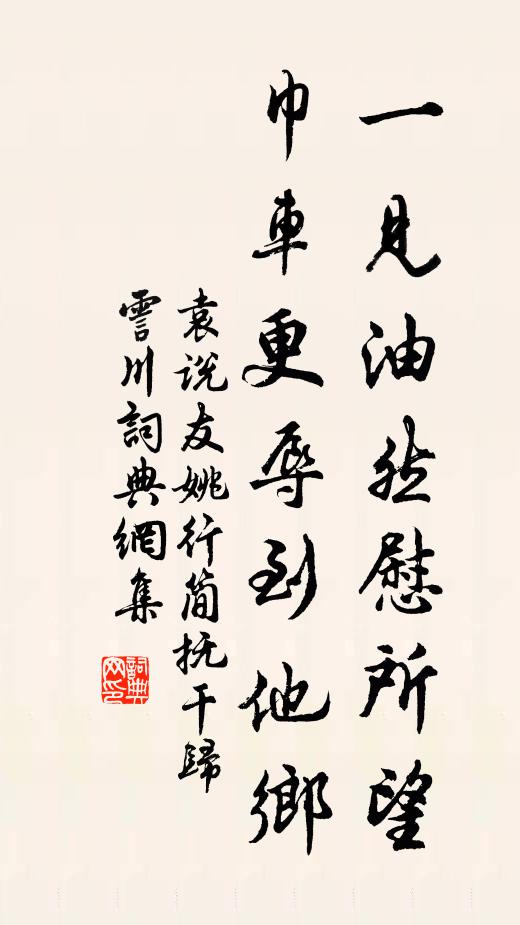 一見油然慰所望
巾車更辱到他鄉
袁说友姚行简抚干歸
雲川詞典網集
詞典网印